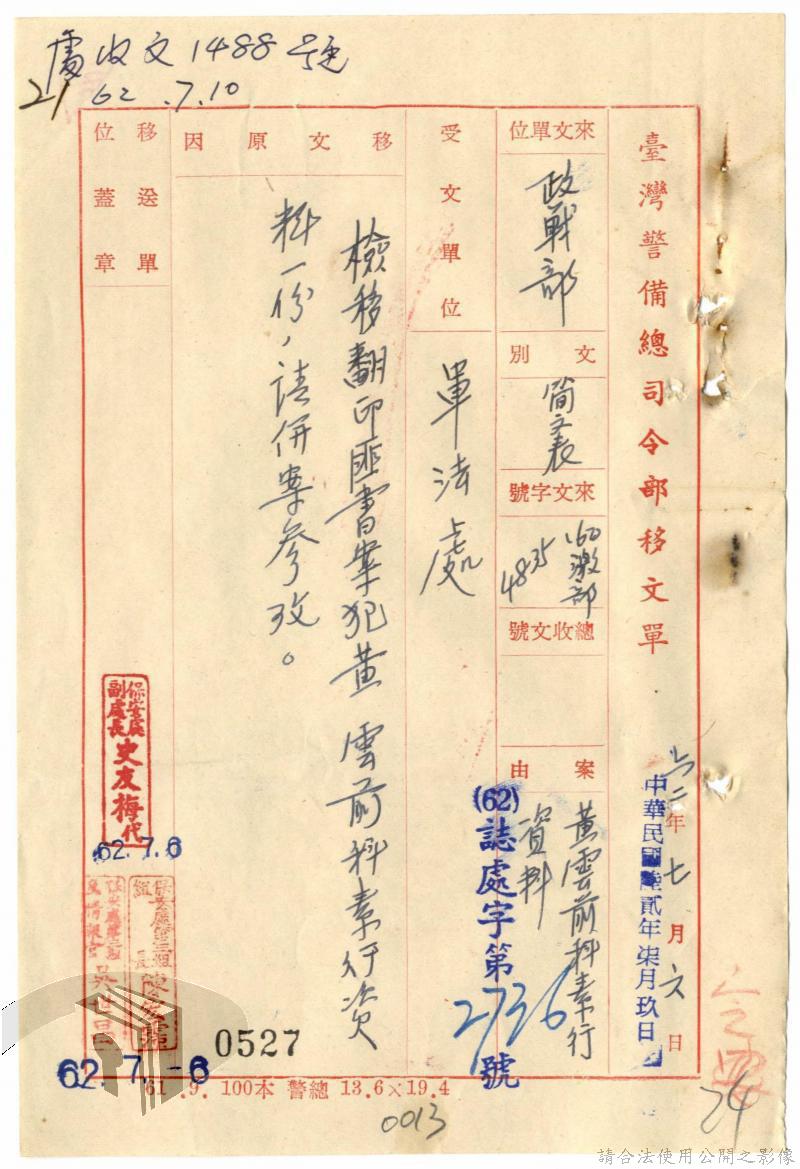 處收文1488號
21 62.7.10
臺灣警備總司令部移文單
六二年七月六日
中華民國陸貳年柒月玖日
來文單位
政戰部
文別
簡便表
來文字號
160激部
4835
總收文號
案由
黃雲前科素行
資料
(62)誌處字第2736號
受文單位
軍法處
移文原因
檢移翻印匪書案犯黃雲前科素行資
料一份,請併案參攷。
移送單
位蓋章
保安處
副處長
史友梅代
62.7.6
保安處第三組
組長
吳世昌
62.7.-6
0527
61.9.100本 警總 13.6×19.4
0013
24
請合法使用公開之影像